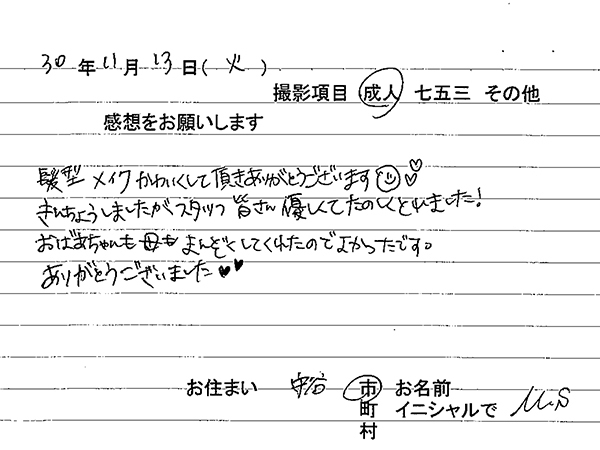 30年11月13日(火)
撮影項目 成人 七五三 その他
感想をお願いします
髪型 メイク かわいくして頂きありがとうございます☺♡
きんちょうしましたがスタッフ皆さん優しくてたのしくとれました!
おばあちゃんも母もまんぞくしてくれたのでよかったです。
ありがとうございました♥♥
お住まい 守谷 市 お名前
町 イニシャルで M.S
村